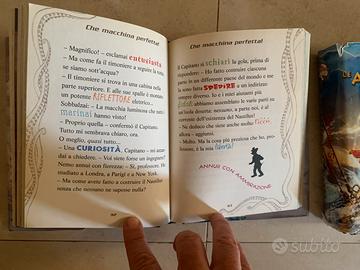 Che macchina perfetta!
– Magnifico! – esclamai entusiasta
– Ma come fa il timoniere a seguire la rotta,
se siamo sott'acqua?
– Il timoniere si trova in una cabina nella
parte superiore. E alle sue spalle è montato
un potente RIFLETTORE elettrico...
Sobbalzai: – La macchia luminosa che tutti i
marinai hanno visto!
– Proprio quella – confermò il Capitano.
Tutto mi sembrava chiaro, ora.
O meglio, quasi tutto...
– Una CURIOSITÀ, Capitano – mi azzardai
a chiedere. – Voi siete forse un ingegnere?
Nemo annuì con fierezza: – Sì. Ho studiato
a Londra, a Parigi e a New York.
– Ma come avete fatto a costruire il Nautilus
senza che nessuno ne sapesse nulla?
Che macchina perfetta!
Il Capitano si schiarì la gola, prima di
rispondere: – Ho fatto costruire ciascun
pezzo in un paese differente del mondo e me
li sono fatti SPEDIRE a un indirizzo
sempre diverso. Io e i miei fidatissimi
abbiamo assemblato le varie parti su
un'isola deserta, e nessuno, a parte noi, è
al corrente dell'esistenza del Nautilus!
– Ne deduco che siete anche molto ricco
– Molto. Ma la cosa più preziosa che ho,
è la mia libertà!
ANNUII CON AMMIRAZIONE
subito